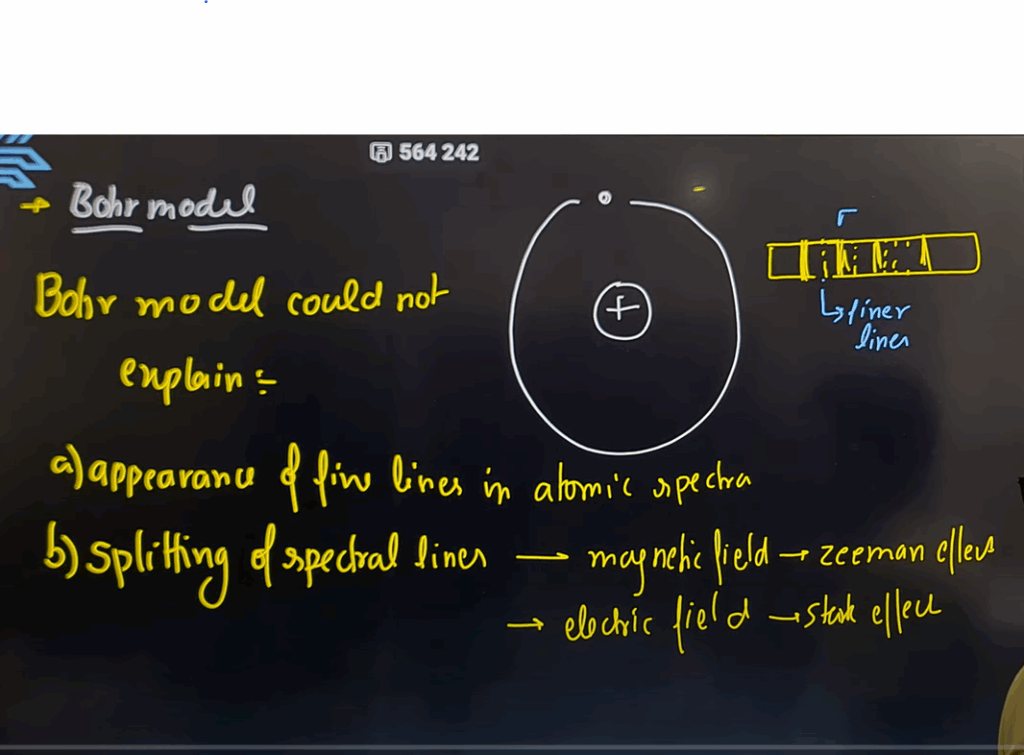 564 242
Bohr model
Bohr model could not
explain :-
r
↳ finer
lines
a) appearance of fine lines in atomic spectra
b) splitting of spectral lines → magnetic field → zeeman effect
→ electric field → stark effect